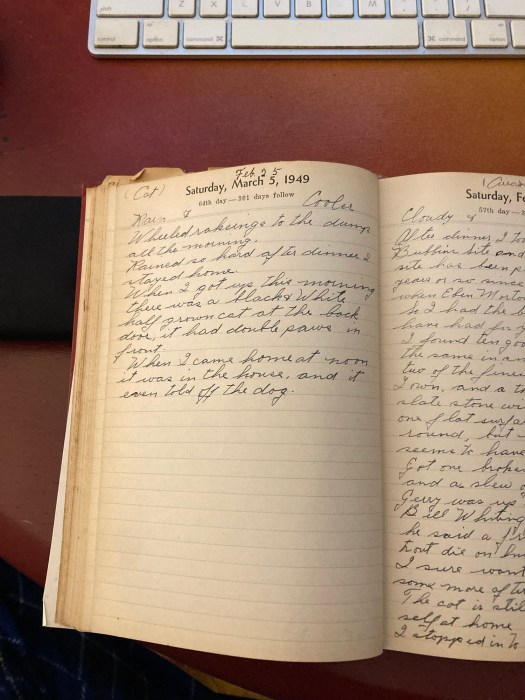 Z X C V B N M
control option command ⌘ ⌘ command option
Feb. 25
(Cat)
Saturday, March 5, 1949
64th day—301 days follow
Rain & Cooler
Wheeled rakeings to the dump
all the morning.
Rained so hard after dinner I
stayed home.
When I got up this morning
there was a black & White
half grown cat at the back
door, it had double paws in
front.
When I came home at noon
it was in the house, and it
even told off the dog.
Saturday, Fe
57th day—
Cloudy &
After dinner I to
Bubbins site and
site has been p
years or so since
when Eben Morto
So I had the b
hans had for
I found ten goo
the same in am
two of the fines
I own, and a th
slate stone w
one flat surfa
round, but
seems to have
Got one broke
and a slew o
Gerry was up
Bill Whiting
he said a
trout die on
I sure want
some more of
The cat is stil
self at home
I stopped in to